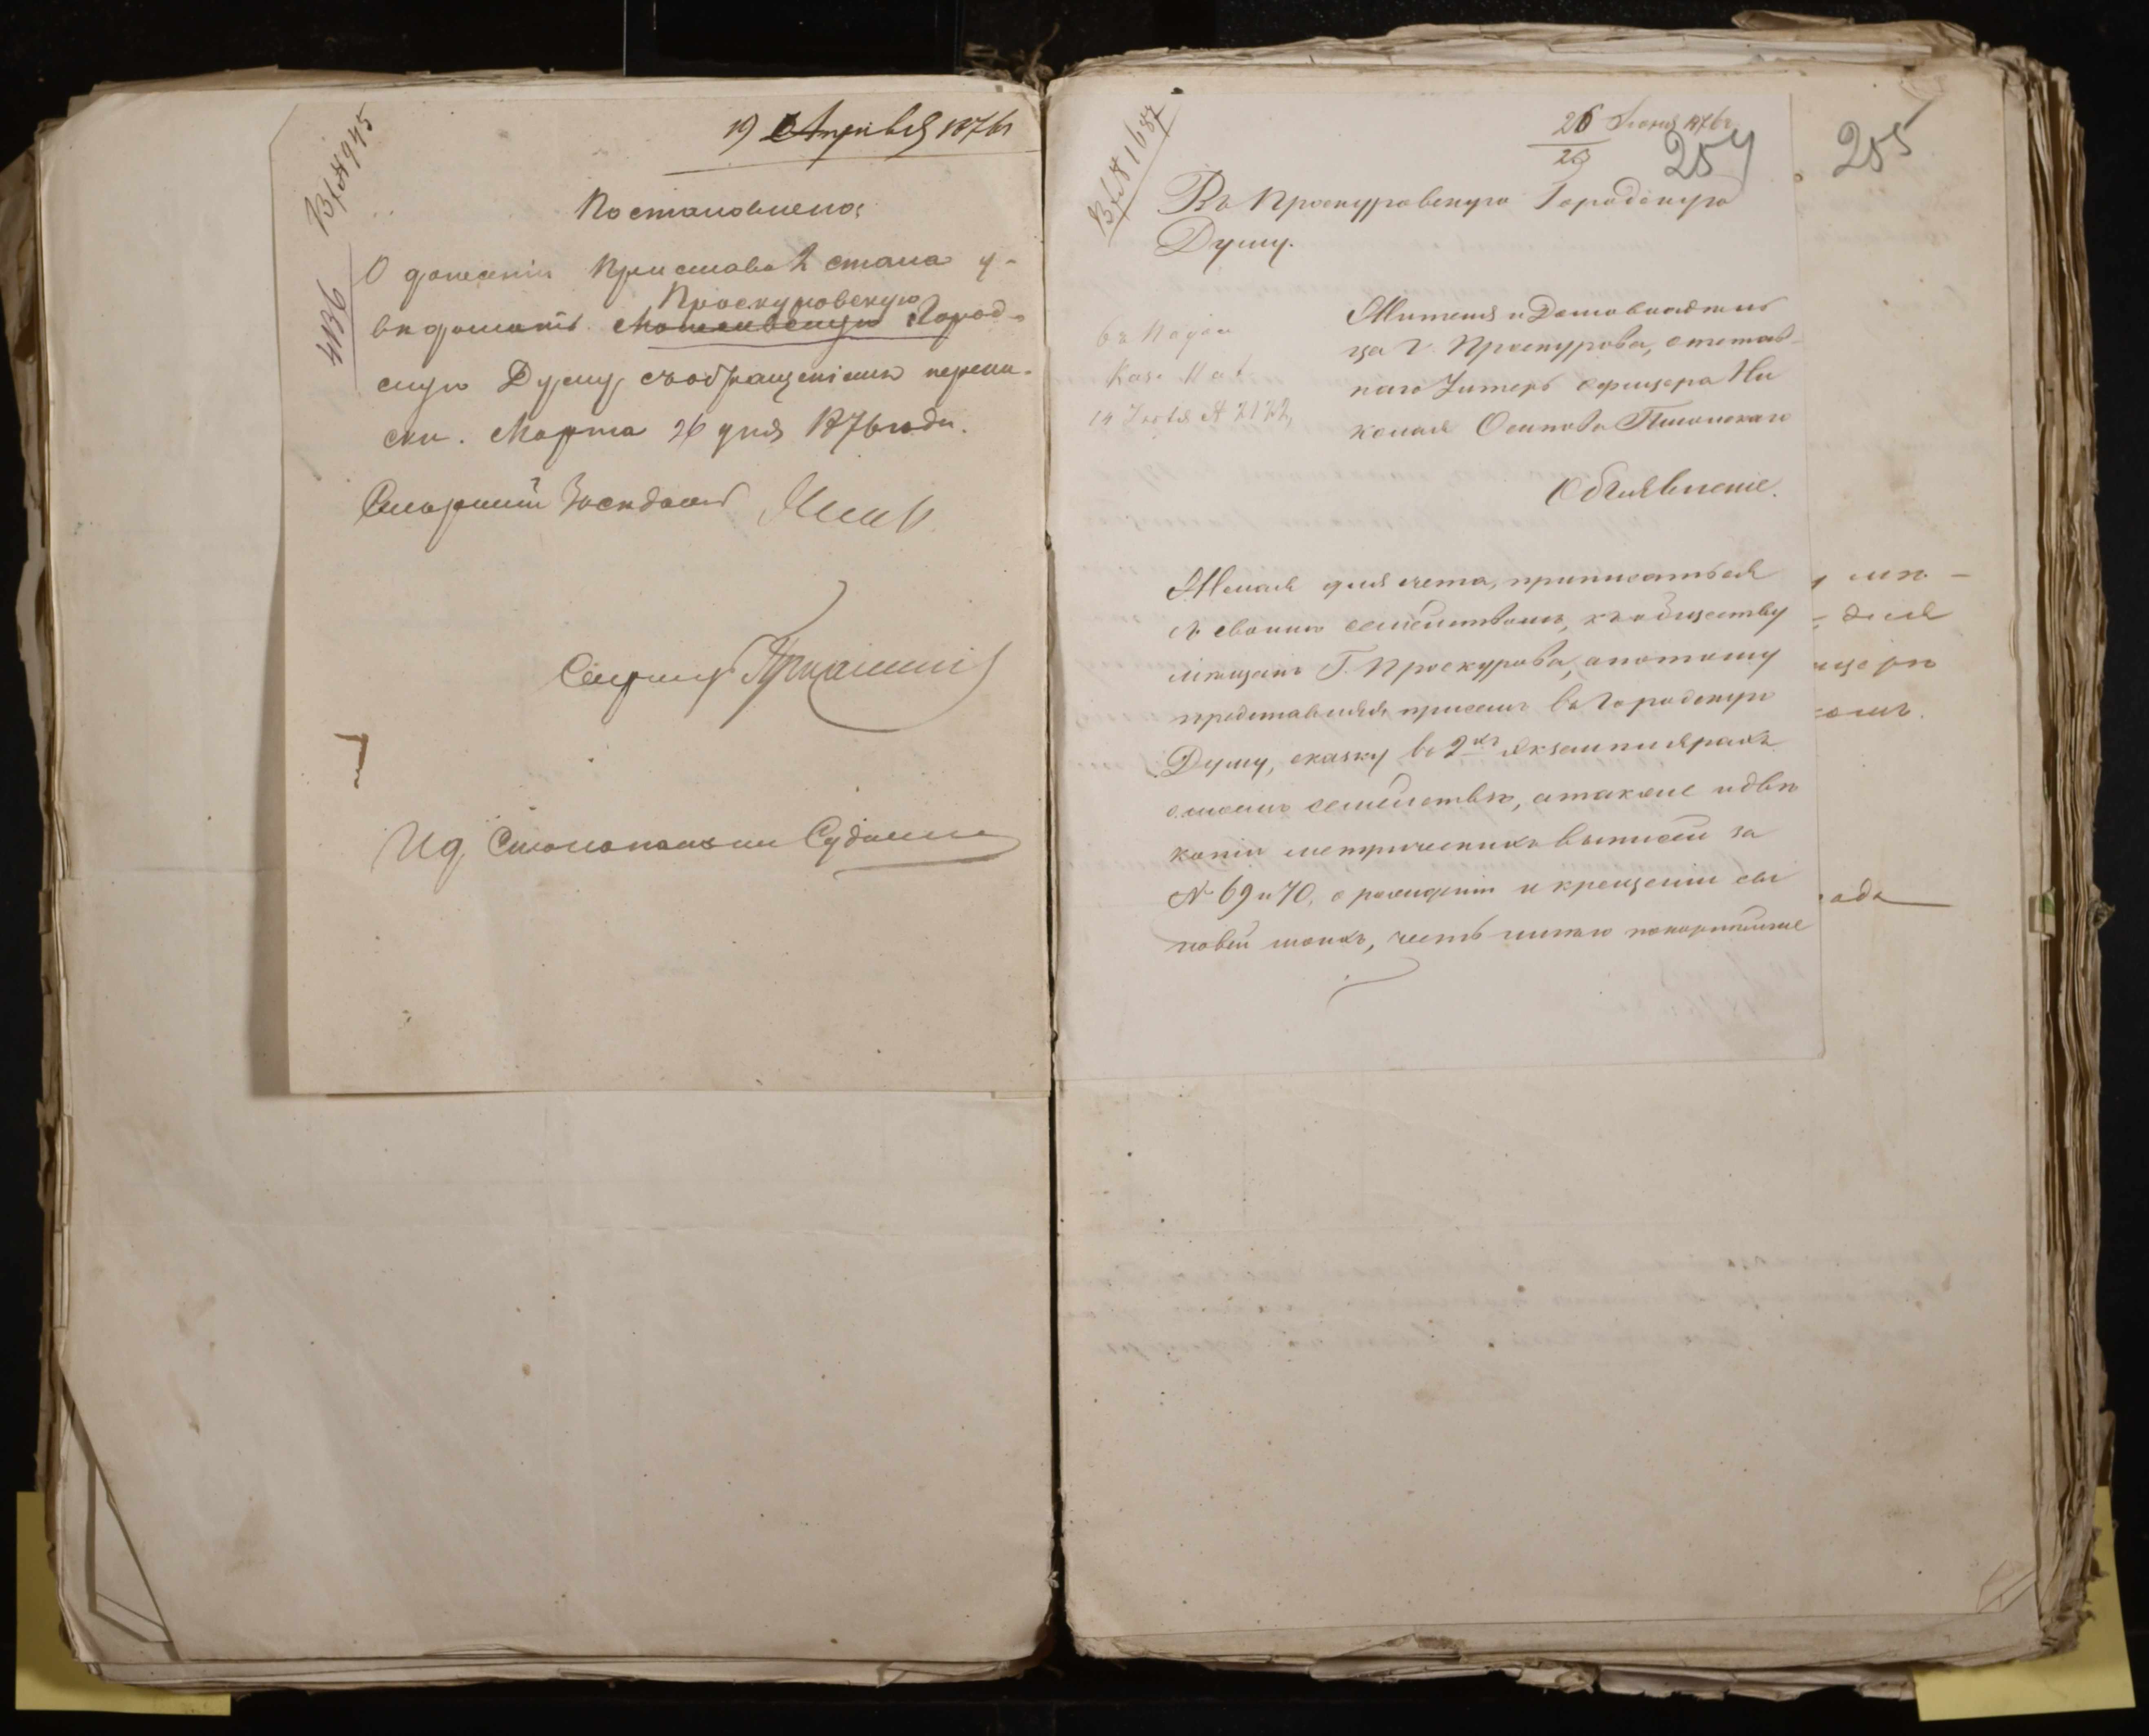 19 Апрѣля 1876 г
Вх № 945
4136
Постановлено:
О донесеніи Пристава 2 стана у-
Проскуровскую
вѣдомить Город-
скую Думу, съ обращеніемъ перепи-
ски. Марта 26 дня 1876 года.
Старшій Засѣдатель
Секретарь
И д Столоначальника
Вх № 1687
26 Іюня 1876 г.
26
254
255
Въ Проскуровскую Городскую
Думу.
въ Подол
Каз. Пал.
14 Іюля № 2122
Жителя и Домовладѣль
ца г. Проскурова, отстав-
наго Унтеръ офицера Ни
колая Осипова
Объявленіе.
Желая для счета, приписаться
съ своимъ семействомъ, къ обществу
мѣщанъ Г. Проскурова, а потому
представляя присемъ въ Городскую
Думу, сказку въ 2хъ экземплярахъ
о моемъ семействѣ, а также и двѣ
копіи метрическихъ выписей за
№ 69 и 70, о рожденіи и крещеніи сы
новей моихъ, честь имѣю покорнѣйше
для